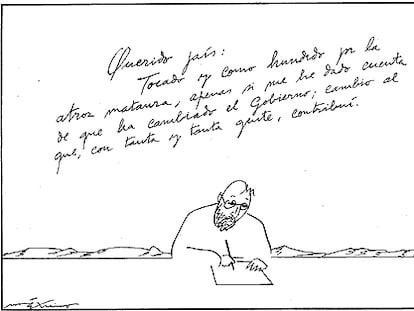 Querido país:
Tocado y como hundido por la
atroz matanza, apenas si me he dado cuenta
de que ha cambiado el Gobierno; cambio al
que, con tanta y tanta gente, contribuí.
máximo